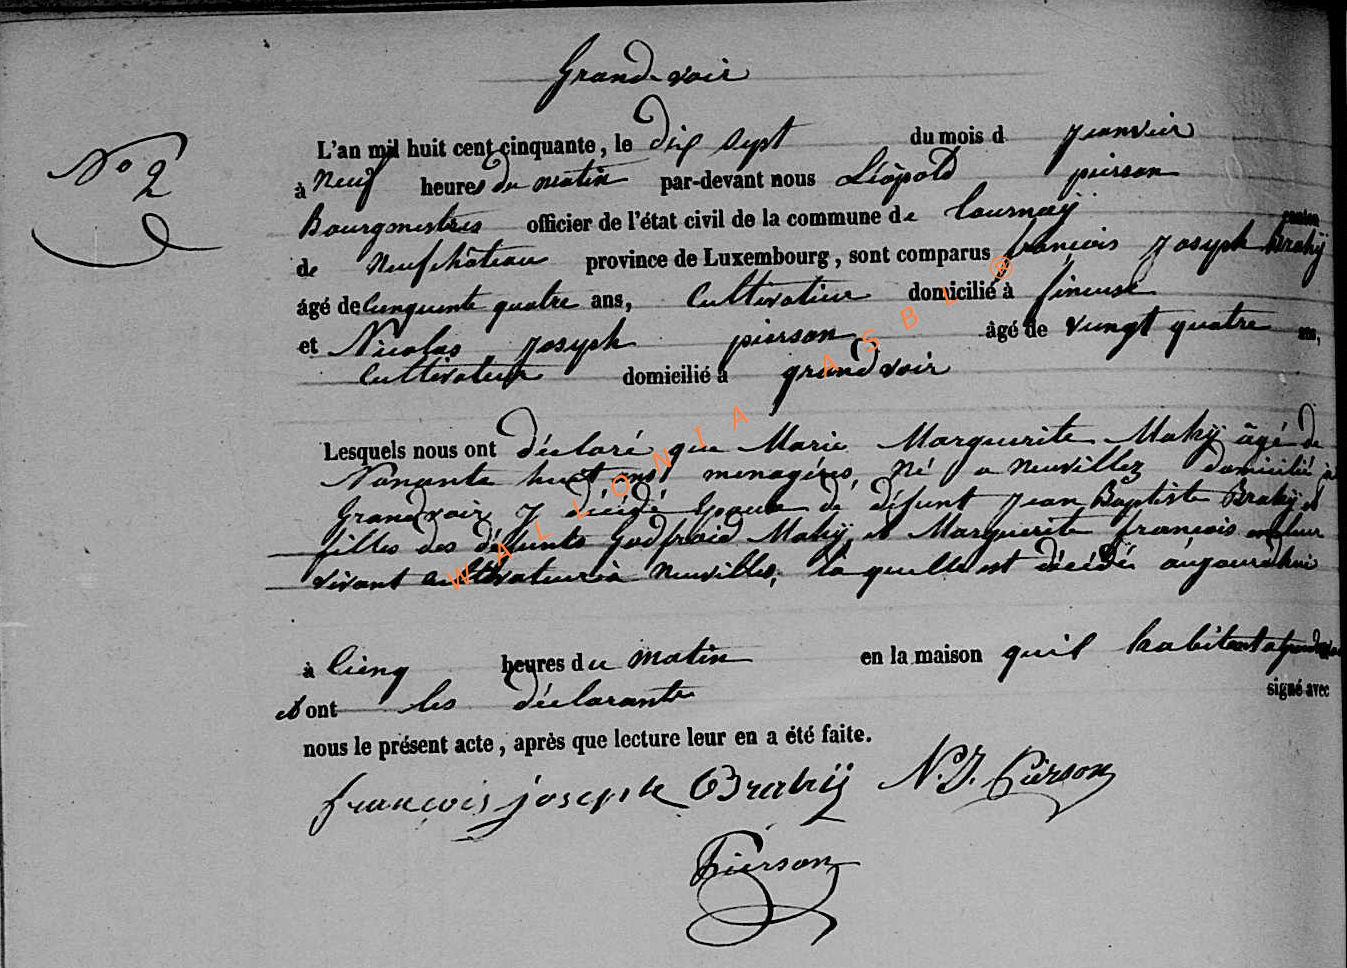 Grand-voir
N° 2
L'an mil huit cent cinquante, le dix sept du mois d janvier
à Neuf heures du matin par-devant nous Léopold pierson
Bourgmestre officier de l'état civil de la commune de tournay canton
de Neufchâteau province de Luxembourg, sont comparus françois Joseph Brahÿ
âgé de Cinquente quatre ans, Cultivateur domicilié à fineuse
et Nicolas Joseph pierson âgé de vingt quatre ans,
Cultivateur domicilié à grandvoir
Lesquels nous ont déclaré que Marie Marguerite Mahÿ âgé de
Nonante huit ans menagére, Né a neuvillez domicilié à
Grandvoir y décédé Epouse de défunt Jean Baptiste Brahÿ et
filles des défunts Godfroid Mahÿ et Marguerite françois en leur
vivant cultivateur à neuvilles, la quelle est décédé aujourdhui
à Cinq heures du matin en la maison quil habitent a grandvoir
et ont les déclarants signé avec
nous le présent acte, après que lecture leur en a été faite.
françois joseph Brahÿ N. J. Pierson
Pierson
WALLONIA ASBL ®